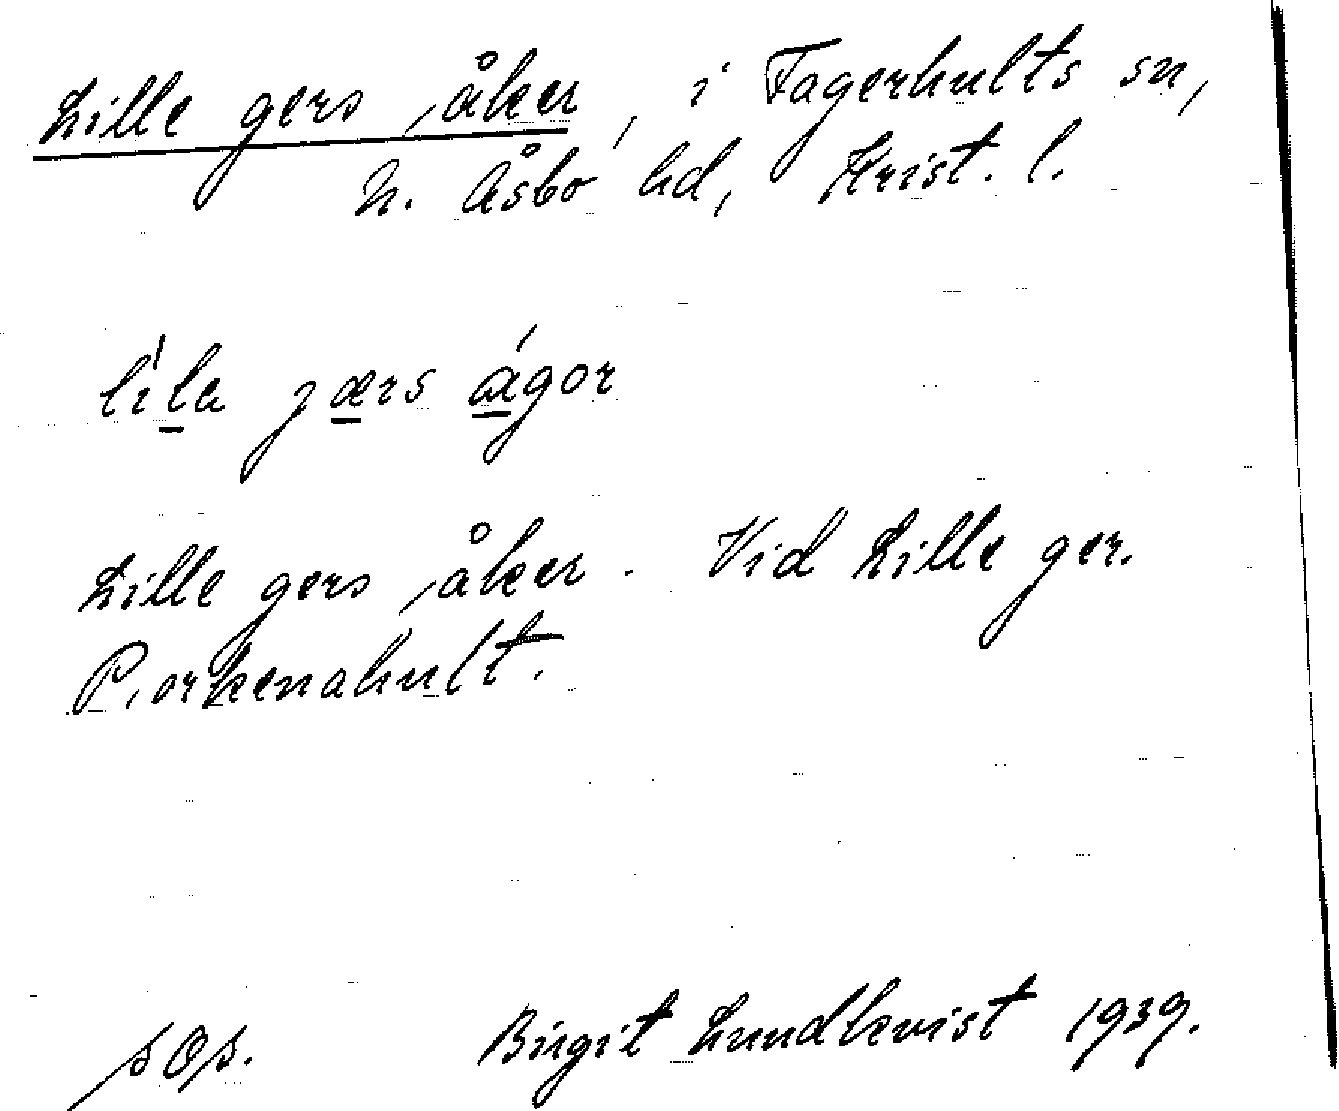 Lille gers ,åker, i Fagerhults sn,
N. Åsbo hd, Krist. l.
lila jærs ágor
Lille gers ,åker. Vid Lille ger.
Birgit Lundkvist 1939.